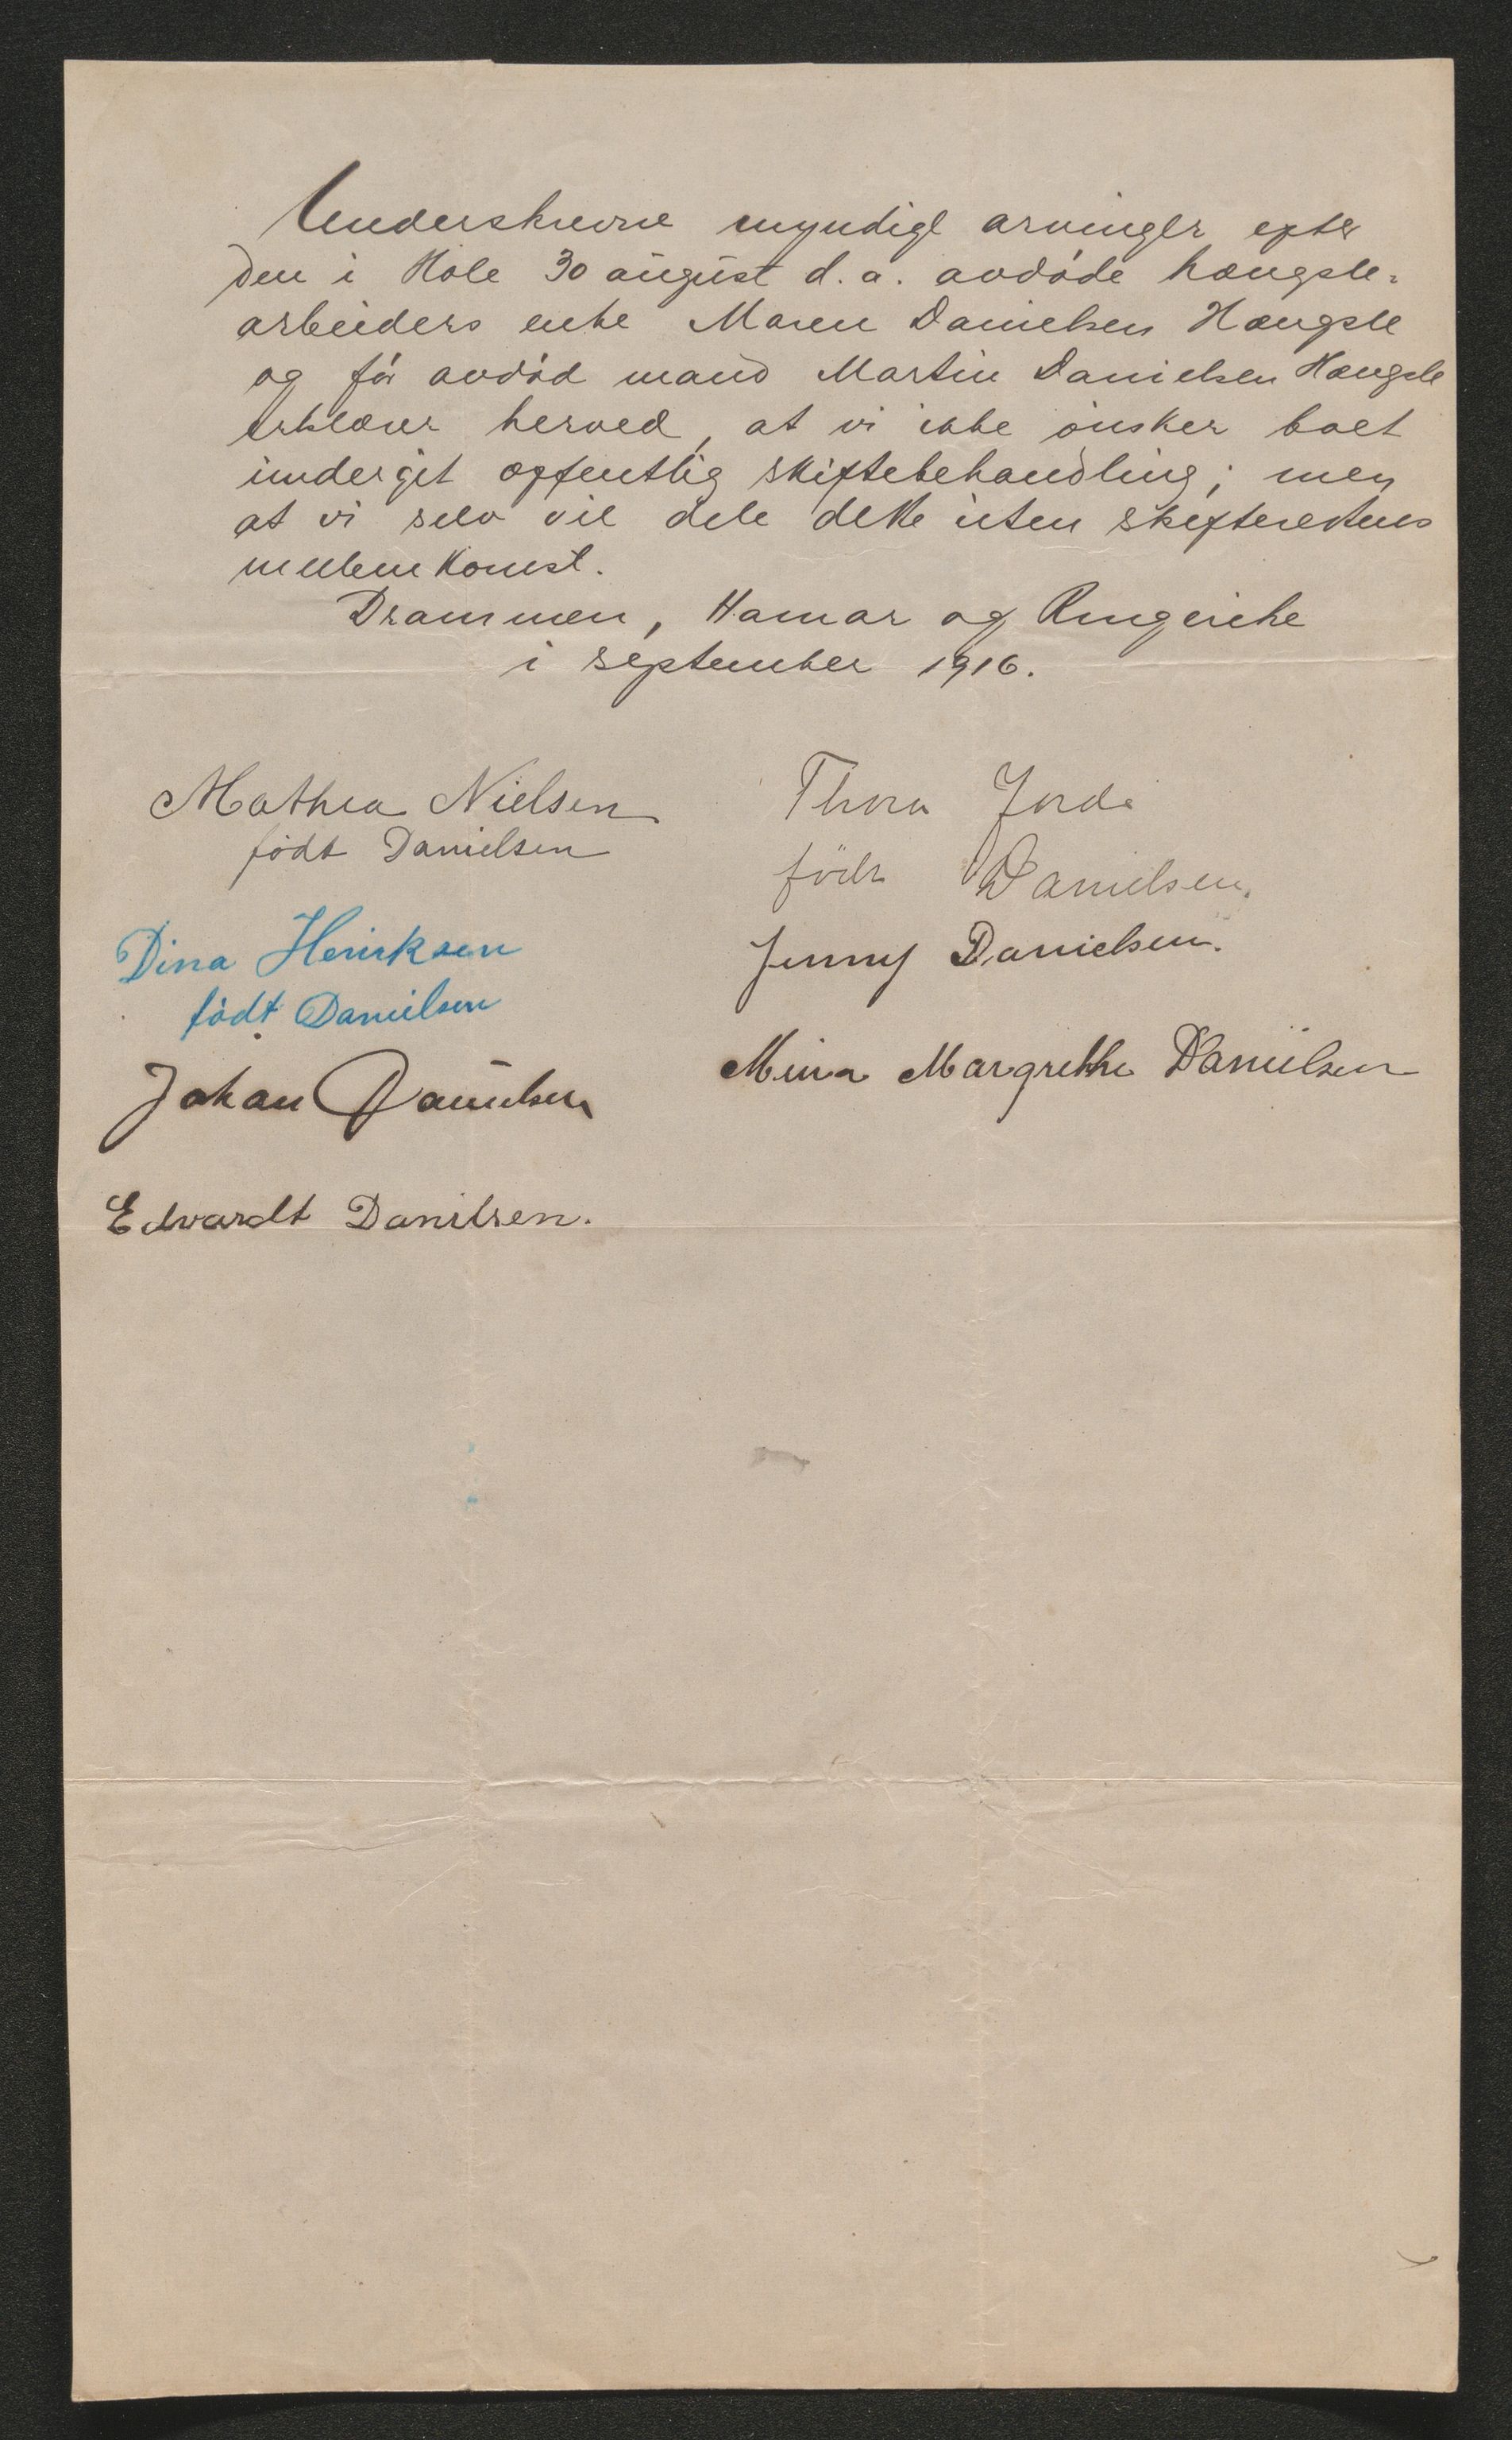 Underskrevne myndige arvinger efter
den i Hole 30 august d. a. avdøde hængsle-
arbeiders enke Maren Danielsen Hængsle
og før avdød mand Martin Danielsen Hængsle
erklærer herved, at vi ikke ønsker boet
undergit offentlig skiftebehandling; men
at vi selv vil dele dette uten skifterettens
mellemkomst.
Drammen, Hamar og Ringerike
i september 1916.
Mathea Nielsen
født Danielsen
Dina Henriksen
født Danielsen
Johan Danielsen
Edvardt Danilsen.
Thora Jorde
født Danielsen.
Jenny Danielsen.
Mina Margrethe Danielsen